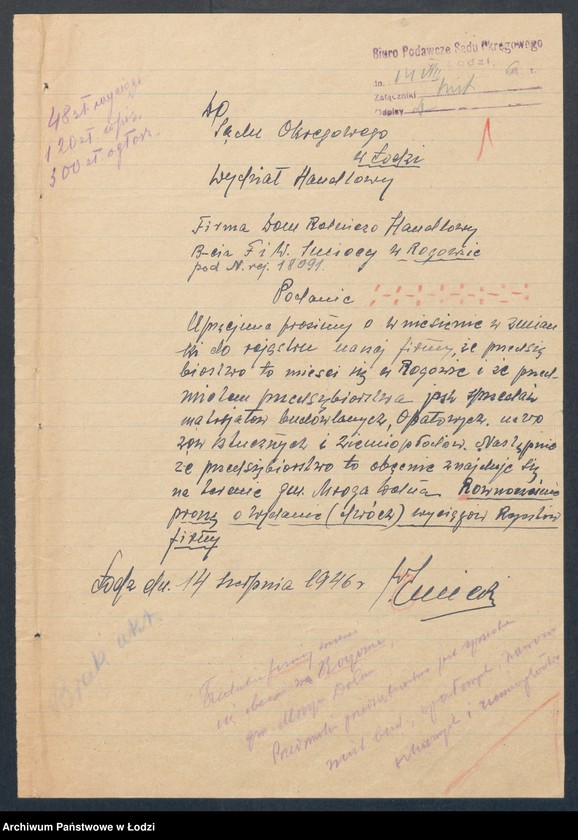 Biuro Podawcze Sądu Okręgowego
w Łodzi
dn. 14 VIII 6 r.
Załączniki
Odpisy
48 zł
120 zł wpis
300 zł ogłosz.
Do
Sądu Okręgowego
w Łodzi
Wydział Handlowy
Firma Dom Rolniczo Handlowy
B-cia F i W. w Rogowie
pod N. rej. 18091.
Podanie
Uprzejmie prosimy o wniesienie wzmian
ki do rejestru naszej firmy, że przedsię
biorstwo to mieści się w Rogowie i że przed-
miotem przedsiębiorstwa jest sprzedaż
materjałów budowlanych, Opałowych, nawo
zów sztucznych i ziemiopłodów. Następnie
że przedsiębiorstwo to obecnie znajduje się
na terenie gm. Mroga Dolna Równocześnie
proszę o wydanie (dwóch) wyciągów Rejestru
firmy
Łódź dn. 14 sierpnia 1946 r
Brak akt.
firmy
się obecnie w Rogowie,
gm Mroga Dolna
Przedmiotem przedsiębiorstwa jest sprzedaż
mat bud, opałowych, nawozów
sztucznych i ziemiopłodów
Archiwum Państwowe w Łodzi